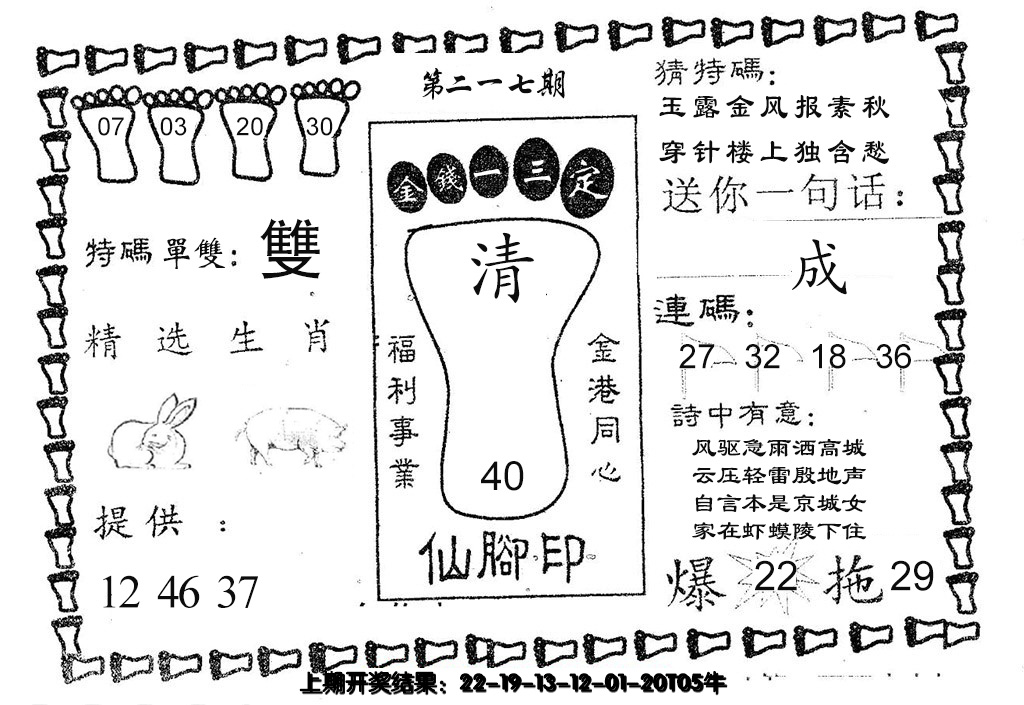 第二一七期
07 03 20 30
特碼單雙：雙
精选生肖
提供：
12 46 37
金錢一三定
清
福利事業
金港同心
40
仙腳印
猜特碼：
玉露金风报素秋
穿针楼上独含愁
送你一句话：
成
連碼：
27 32 18 36
詩中有意：
风驱急雨洒高城
云压轻雷殷地声
自言本是京城女
家在虾蟆陵下住
爆 22 拖 29
上期开奖结果：22-19-13-12-01-20T05牛